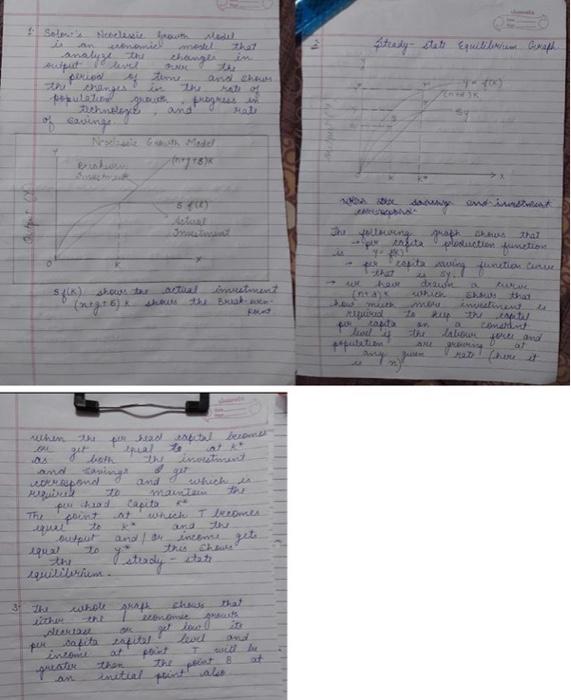 1. Solow's Neoclassic Growth Model
is an economic model that
analyze the changes in
output level over the
period of time and shows
the changes in the rate of
population growth, progress in
technologie, and rate
of savings.
Neoclassic Growth Model
Y
(n+g+δ)k
Breakeven
Investment
S f(k)
Actual
Investment
Output (Y)
O
k
x
Sf(k) shows the actual investment
(n+g+δ)k shows the Break-even
point
Steady-state Equilibrium Graph
y = f(k)
(n+d)k
Sy
k
k*
x
saving and investment
correspond
The following graph shows that
→ per capita production function
is y = f(k)
→ per capita saving function curve
that is sy.
→ we have drawn a curve
(n+d)k which shows that
how much more investment is
required to keep the capital
per capita on a constant
level if the labour force and
population are growing at
any given rate (here it
is n)
when the per head capital becomes
or get equal to at k*
as both the investment
and savings get
correspond and which is
required to maintain the
per head capita k*
The point at which T becomes
equal to k* and the
output and/or income gets
equal to y* this shows
the steady-state
equilibrium.
3. The whole graph shows that
either the economic growth
decrease or get low its
per capita capital level and
income at point T will be
greater then the point B at
an initial point also